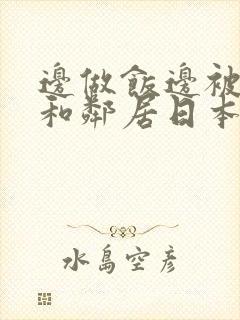 邊做飯邊被
和鄰居日本
水島空彥